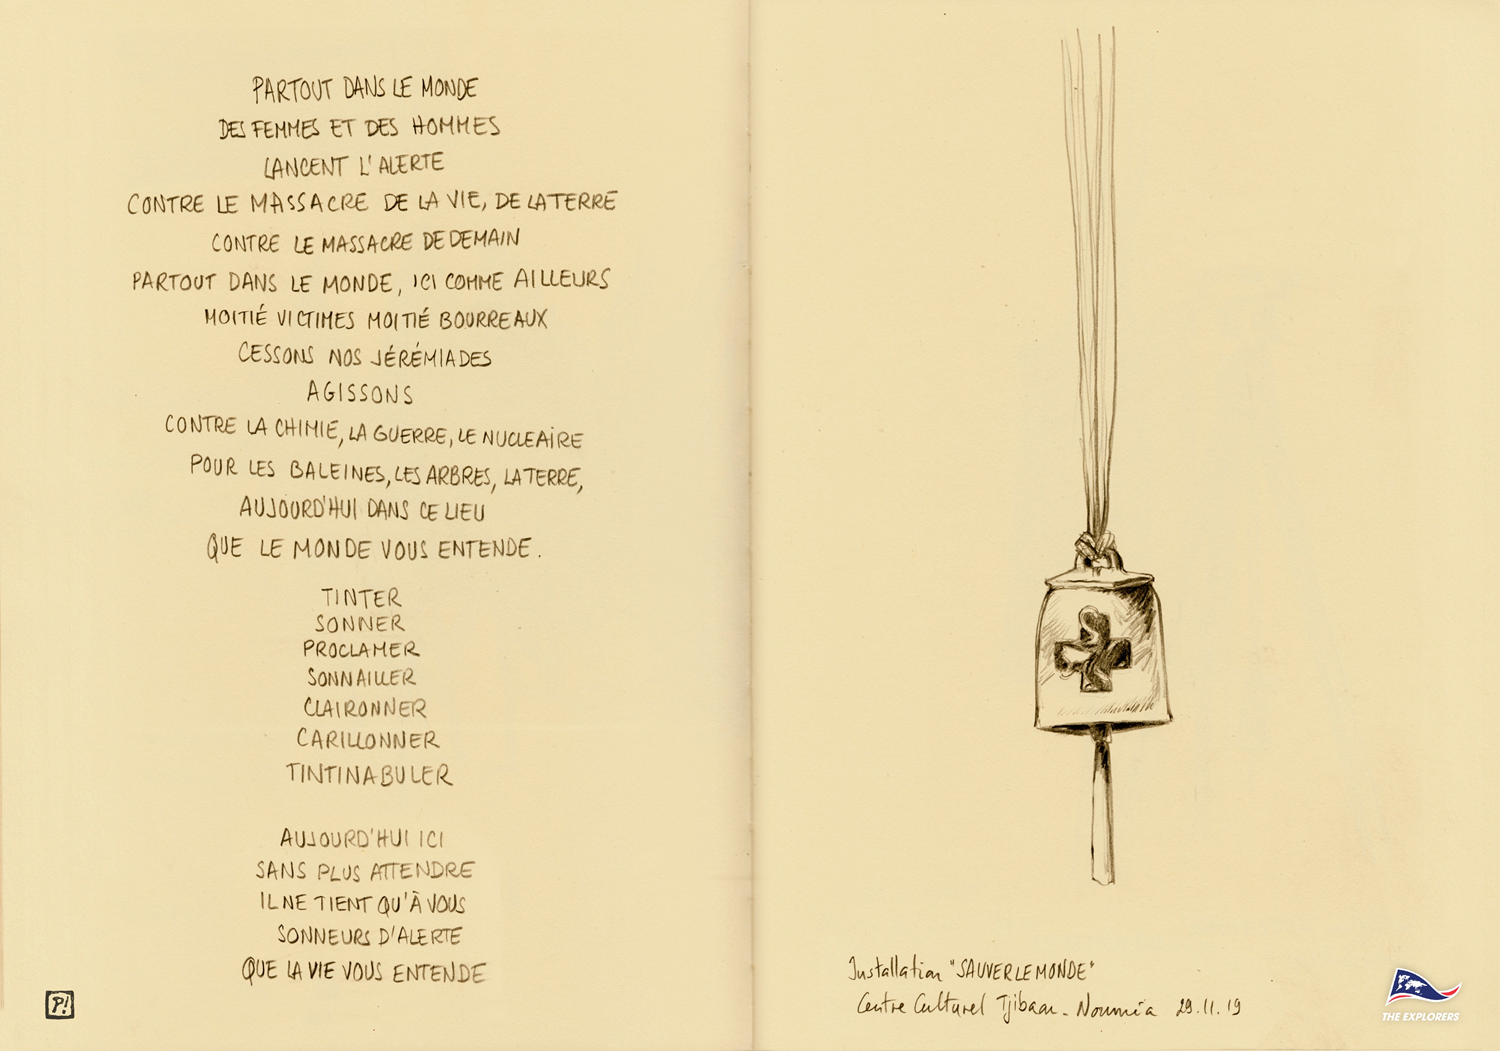 PARTOUT DANS LE MONDE
DES FEMMES ET DES HOMMES
LANCENT L'ALERTE
CONTRE LE MASSACRE DE LA VIE, DE LA TERRE
CONTRE LE MASSACRE DE DEMAIN
PARTOUT DANS LE MONDE, ICI COMME AILLEURS
MOITIÉ VICTIMES MOITIÉ BOURREAUX
CESSONS NOS JÉRÉMIADES
AGISSONS
CONTRE LA CHIMIE, LA GUERRE, LE NUCLEAIRE
POUR LES BALEINES, LES ARBRES, LA TERRE,
AUJOURD'HUI DANS CE LIEU
QUE LE MONDE VOUS ENTENDE.
TINTER
SONNER
PROCLAMER
SONNAILLER
CLAIRONNER
CARILLONNER
TINTINABULER
AUJOURD'HUI ICI
SANS PLUS ATTENDRE
IL NE TIENT QU'À VOUS
SONNEURS D'ALERTE
QUE LA VIE VOUS ENTENDE
P!
Installation "SAUVER LE MONDE"
Centre Culturel Tjibaou - Nouméa 29.11.19
THE EXPLORERS